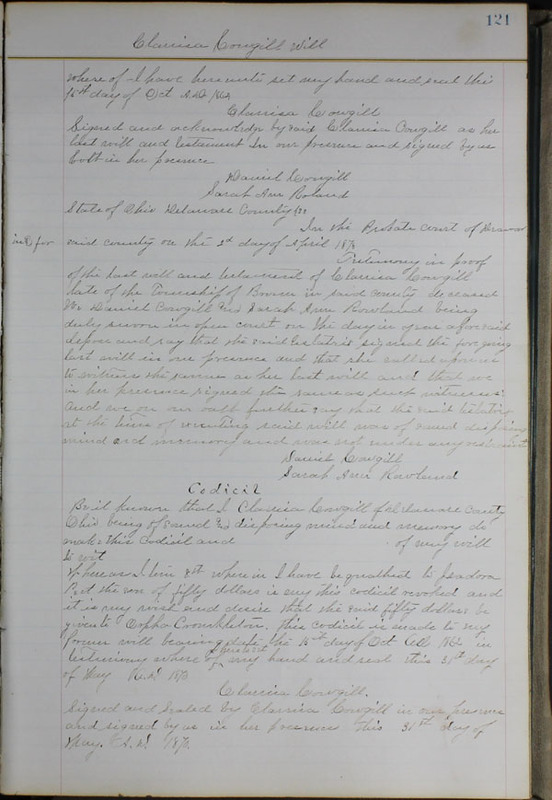 121
Clarrisa Cowgill Will
where of I have hereunto set my hand and seal this
15th day of Oct A.D. 1862
Clarrisa Cowgill
Signed and acknowledge by said Clarrisa Cowgill as her
last will and testament In our presence and signed by us
both in her presence
Daniel Cowgill
Sarah Ann Roland
State of Ohio Delaware County SS
In the Probate Court of Delaware
and for
said county on the 2d day of April 187
Testimony in proof
of the last will and testament of Clarrisa Cowgill
late of the Township of Brown in said county deceased
We Daniel Cowgill and Sarah Ann Rowland being
duly sworn in open court on the day in year aforesaid
depose and say that the said testatrix signed the foregoing
last will in our presence and that she called upon us
to witness the same as her last will and that we
in her presence signed the same as such witnesses
And we on our oath further say that the said testatrix
at the time of executing said will was of sound disposing
mind and memory and was not under any restraint
Daniel Cowgill
Sarah Ann Rowland
Codicil
Be it known that I Clarrisa Cowgill of Delaware County
Ohio being of sound and disposing mind and memory do
make this codicil and of my will
to wit
Whereas Item 8th wherein I have bequeathed to Isadora
the sum of fifty dollars is by this codicil revoked and
it is my wish and desire that the said fifty dollars be
given to Orpha Crumbleton. this codicil is made to my
former will bearing date the 15th day of Oct AD 1862 in
testimony where of my hand and seal this 31st day
of May A.D. 187
Clarrisa Cowgill.
Signed and sealed by Clarrisa Cowgill in our presence
and signed by us in her presence this 31st day of
May. A.D. 187